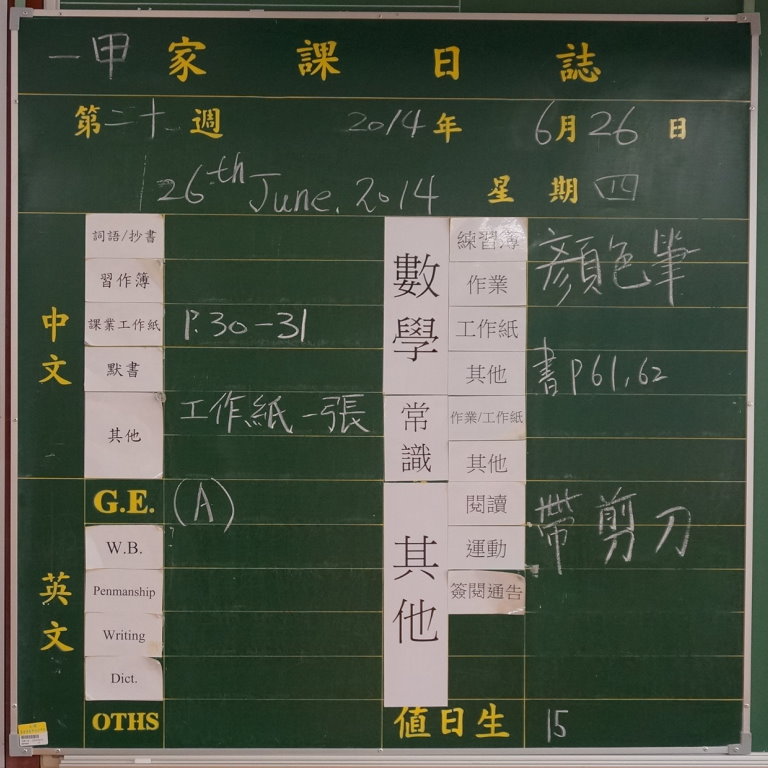 一甲 家課日誌
第二十週 2014年 6月26日
26th June. 2014 星期四
中文
詞語/抄書
習作簿
課業工作紙 P.30-31
默書
其他 工作紙一張
英文
G.E. (A)
W.B.
Penmanship
Writing
Dict.
OTHS
數學
練習簿 顏色筆
作業
工作紙
其他 書P61,62
常識
作業/工作紙
其他
其他
閱讀 帶剪刀
運動
簽閱通告
值日生 15